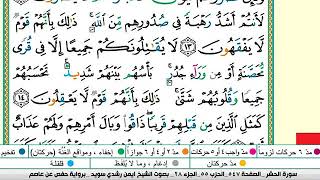 لَأَنتُمْ أَشَدُّ رَهْبَةً فِى صُدُورِهِم مِّنَ ٱللَّهِۚ ذَٰلِكَ بِأَنَّهُمْ قَوْمٌ
لَّا يَفْقَهُونَ ١٣ لَا يُقَٰتِلُونَكُمْ جَمِيعًا إِلَّا فِى قُرًى
مُّحَصَّنَةٍ أَوْ مِن وَرَآءِ جُدُرٍۭۚ بَأْسُهُم بَيْنَهُمْ شَدِيدٌۚ تَحْسَبُهُمْ
جَمِيعًا وَقُلُوبُهُمْ شَتَّىٰۚ ذَٰلِكَ بِأَنَّهُمْ قَوْمٌ لَّا يَعْقِلُونَ ١٤
مِن قَبْلِهِمْ قَرِيبًاۖ ذَاقُوا۟ وَبَالَ أَمْرِهِمْ وَلَهُمْ عَذَابٌ
مدّ ٦ حركات لزوماً مدّ واجب ٤ أو ٥ حركات مدّ ٢ أو ٤ أو ٦ جوازاً إخفاء، ومواقع الغُنَّة (حركتان) تفخيم
مدّ حركتان إدغام، وما لا يُلفَظ قلقلة
سورة الحشر - الصفحة ٥٤٧ - الجزء ٢٨ - بصوت الشيخ أيمن رشدي سويد - برواية حفص عن عاصم